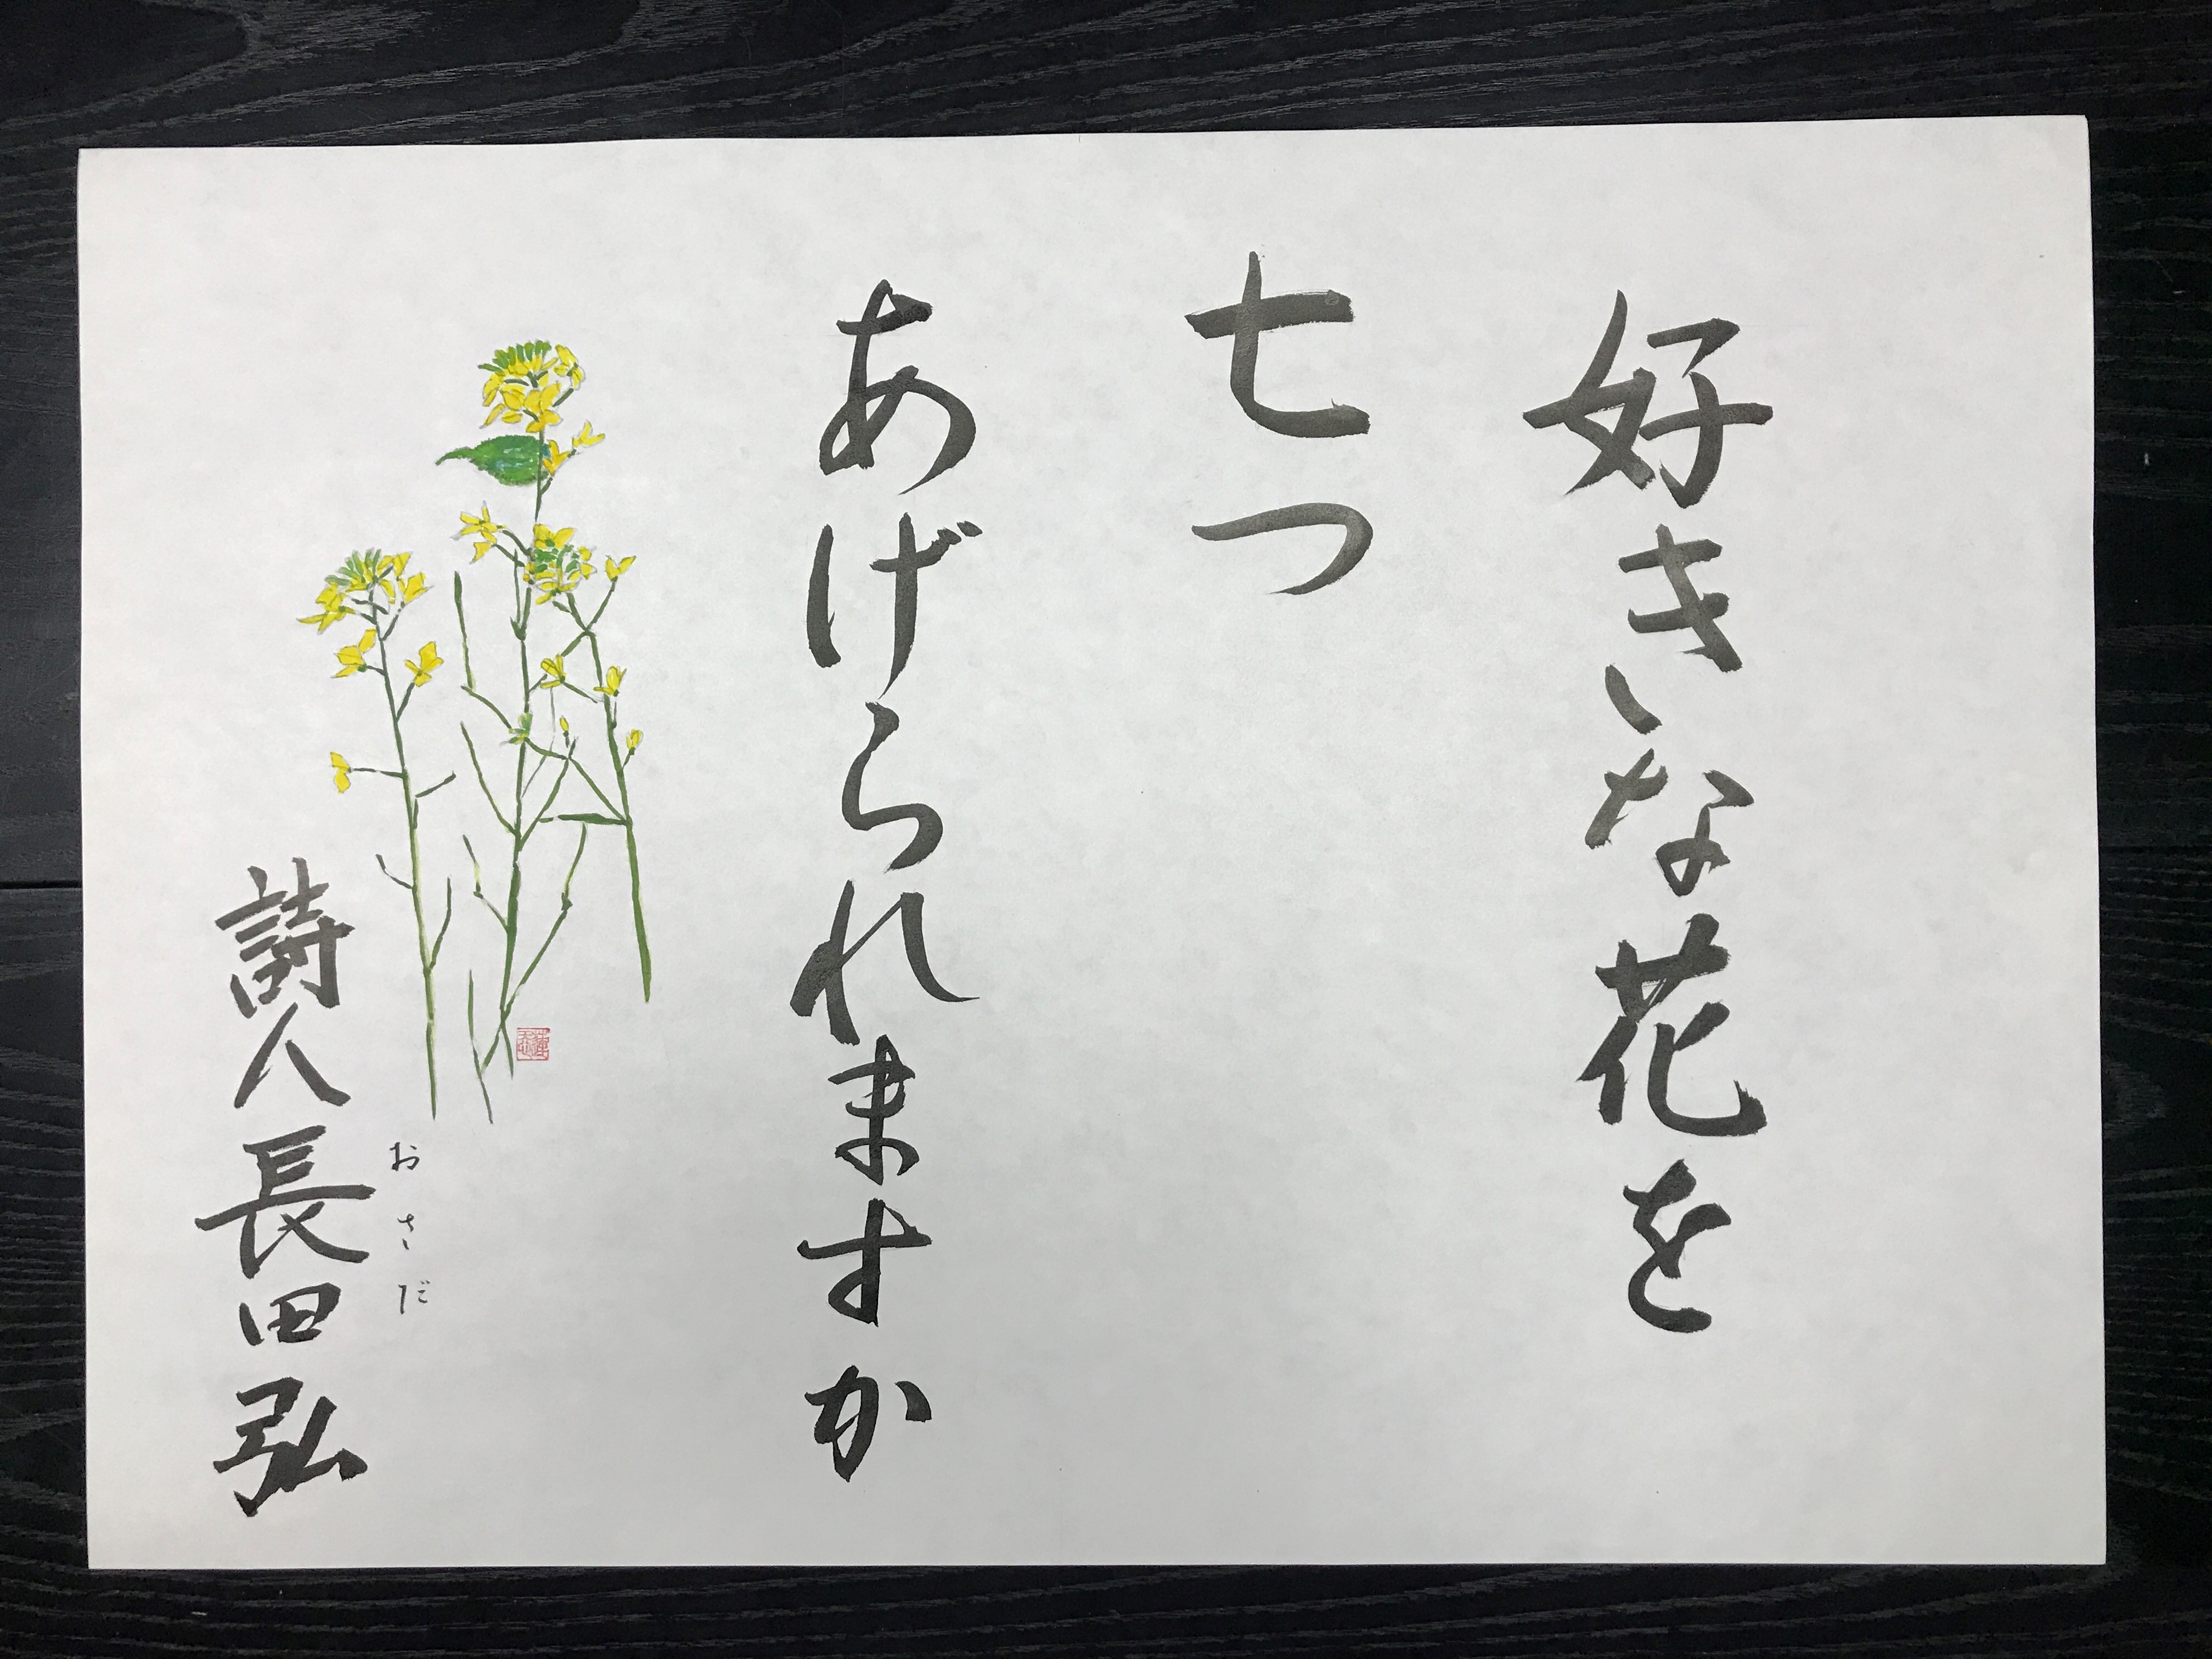 好きな花を
七つ
あげられますか
詩人 長田弘
おさだ